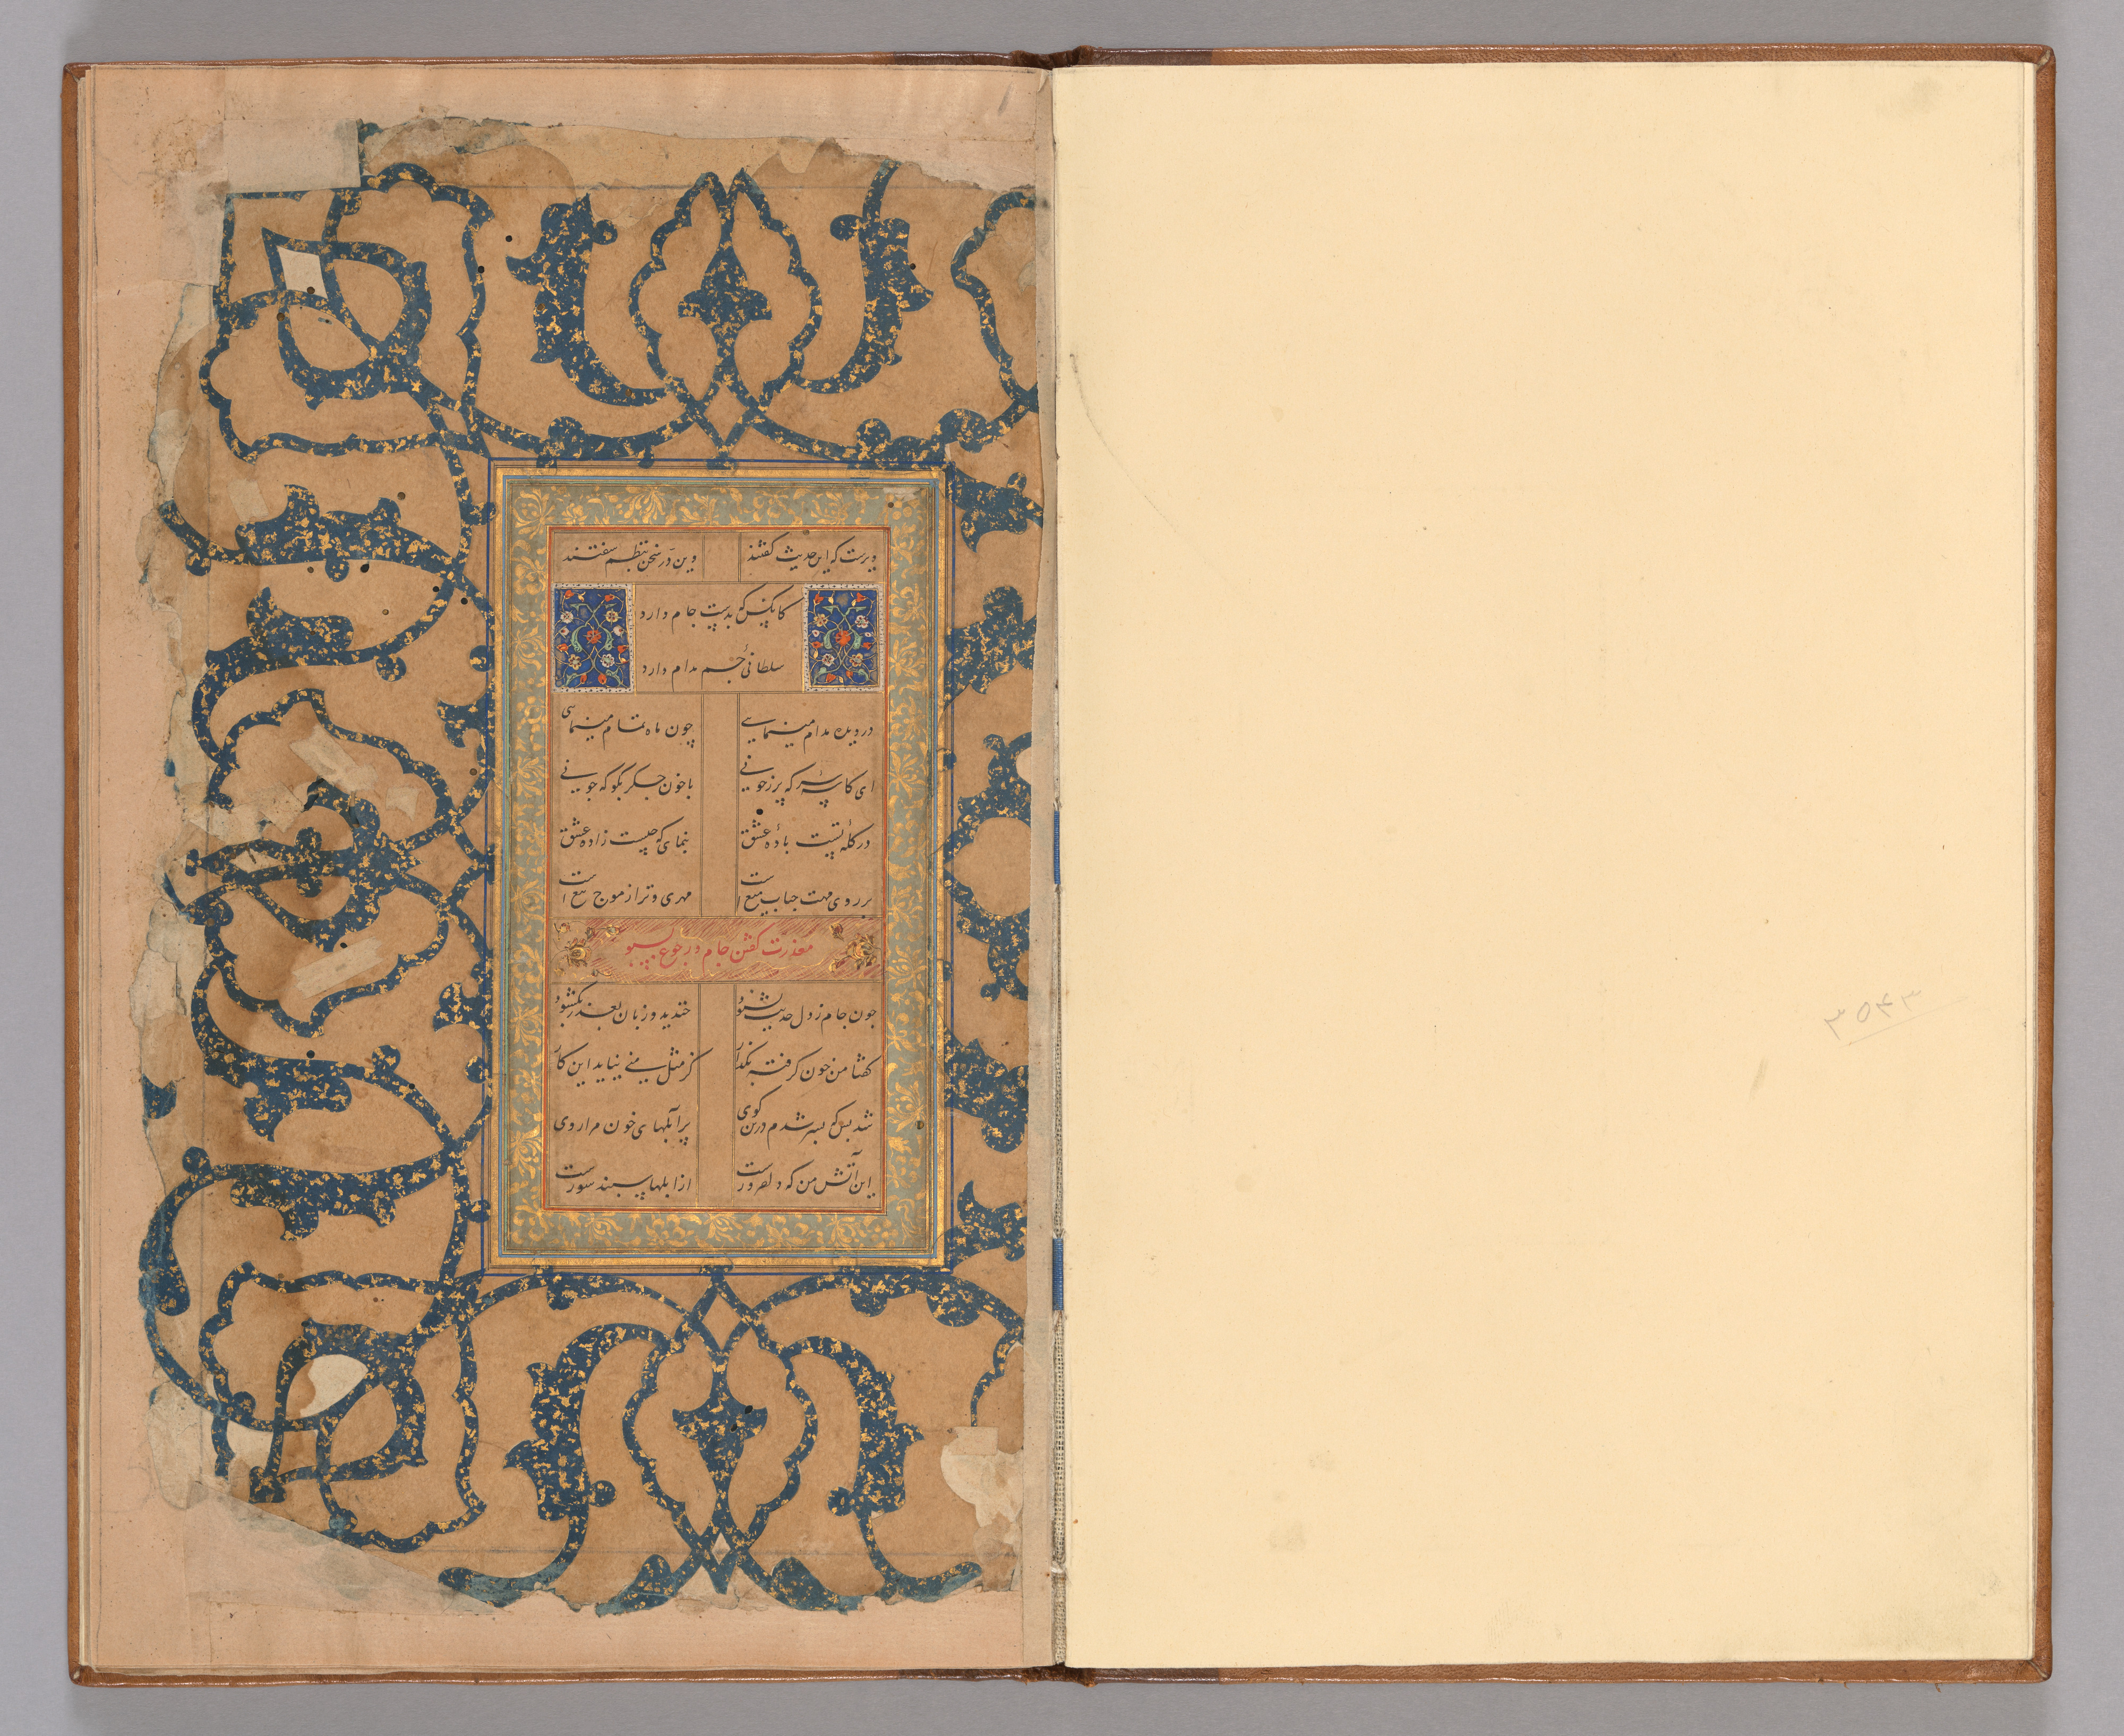 دیرست که این حدیث گفتند وین در سخن بنظم سفتند
کانکس که بدست جام دارد
سلطانی جم مدام دارد
در دیده مدام مینمایی چون ماه تمام مینمایی
ای کاسه سر که پر ز خونی با خون جگر بگو که چونی
در کله تست بادهٔ عشق بنمای که چیست زادهٔ عشق
بر روی مهت حباب میغ است مهری و ترا ز موج تیغ است
معذرت گفتن جام در جوع بسبو
چون جام ز دل حدیث بشنود خندید و زبان بعذر بگشود
گفتا من خون گرفته بگذار کز مثل منی نیاید این کار
شد بس که بسر شدم درین کوی پر آبلهای خون مرا روی
این آتش من که دلفروزست از آبلها سپند سوزست
۳۵۴۳